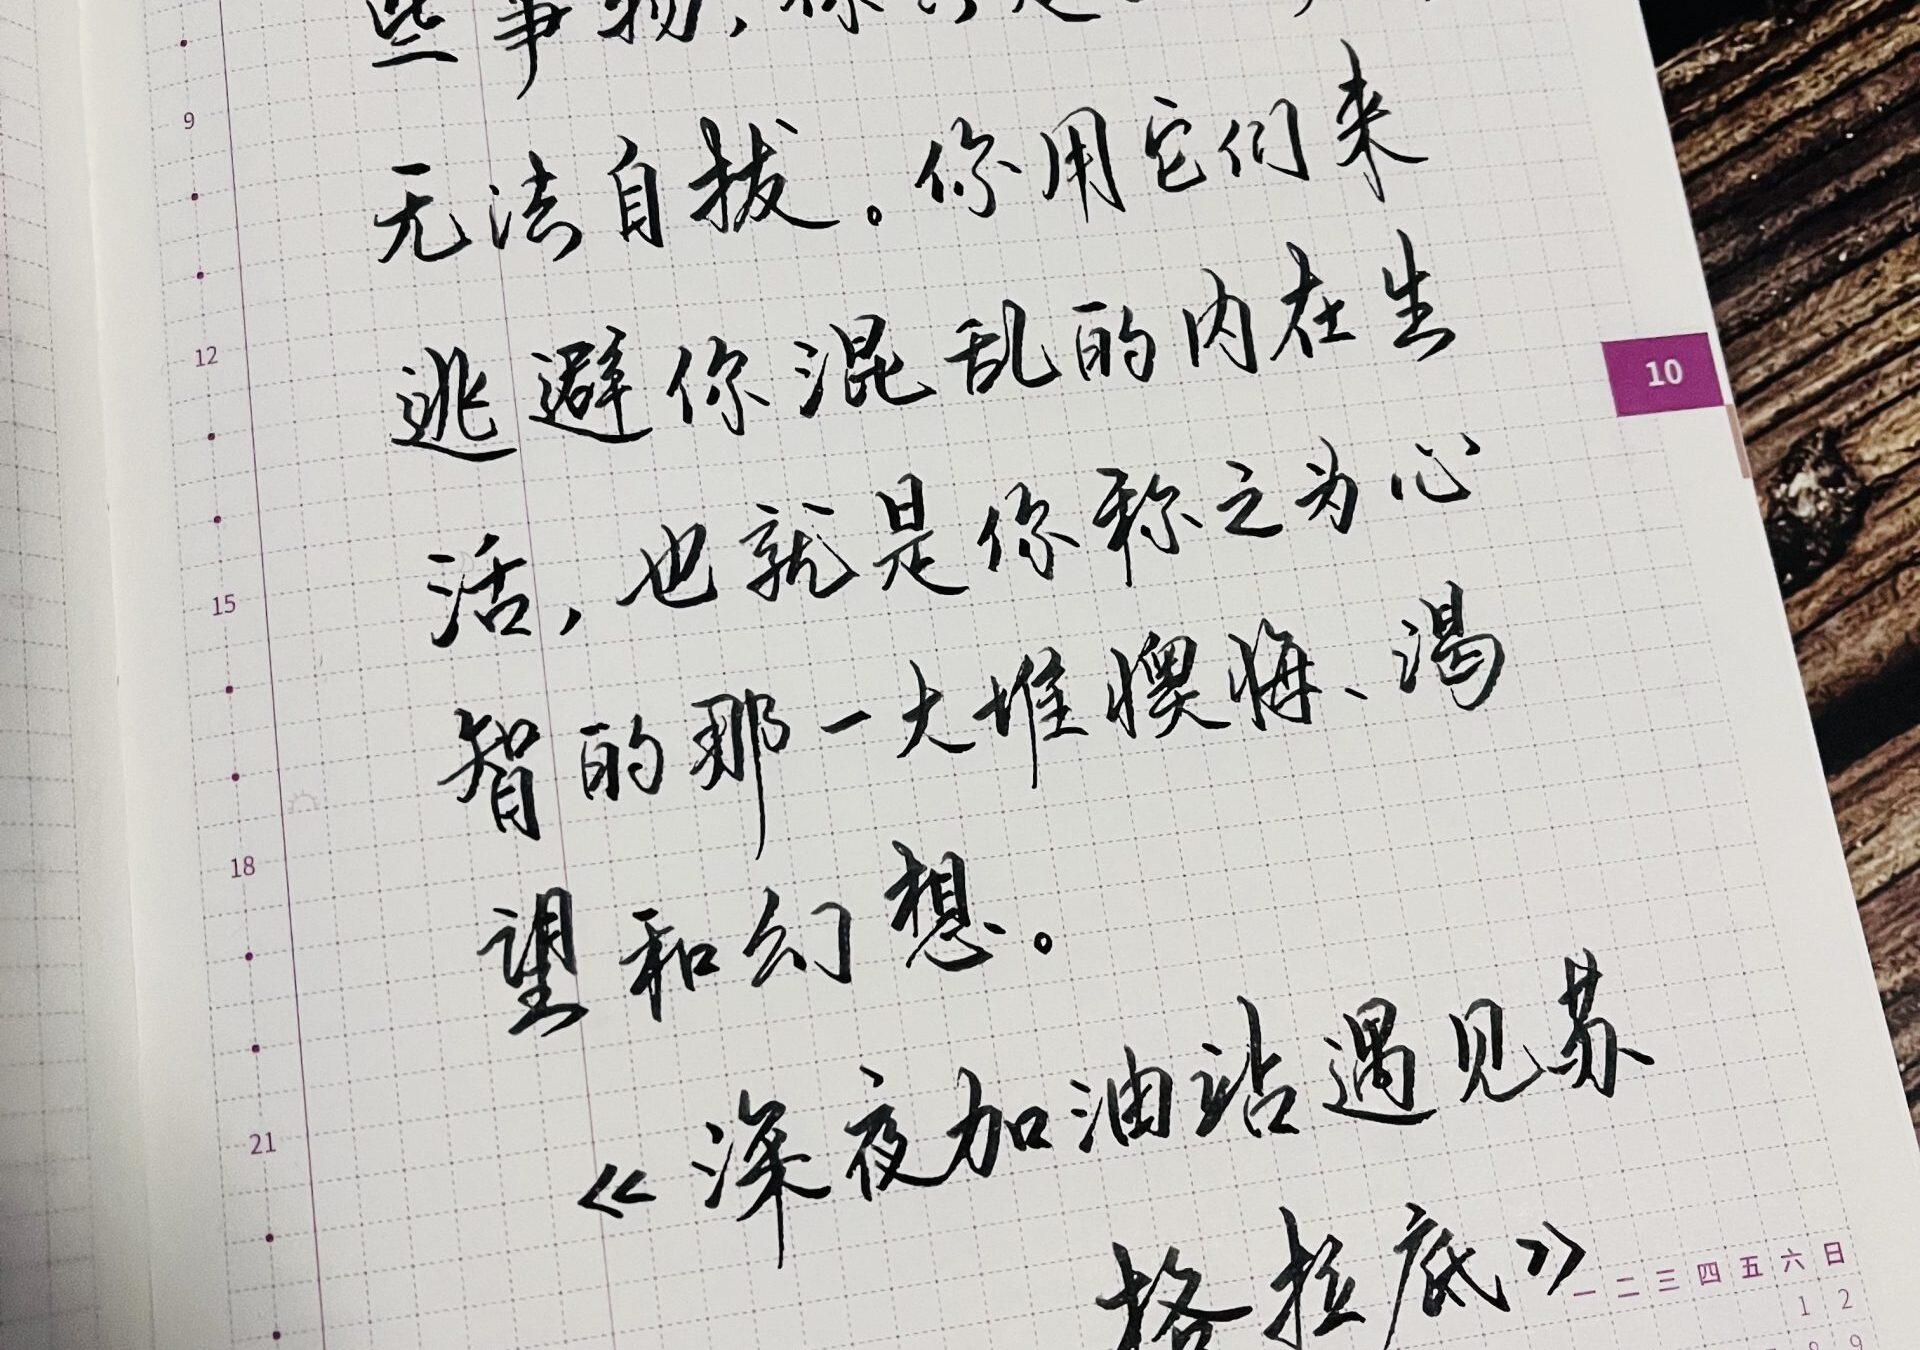 些事物，你只是
9
无法自拔。你用它们来
12
逃避你混乱的内在生
10
15
活，也就是你称之为心
智的那一大堆懊悔、渴
18
望和幻想。
21
《深夜加油站遇见苏
格拉底》
一 二 三 四 五 六 日
1 2
8 9